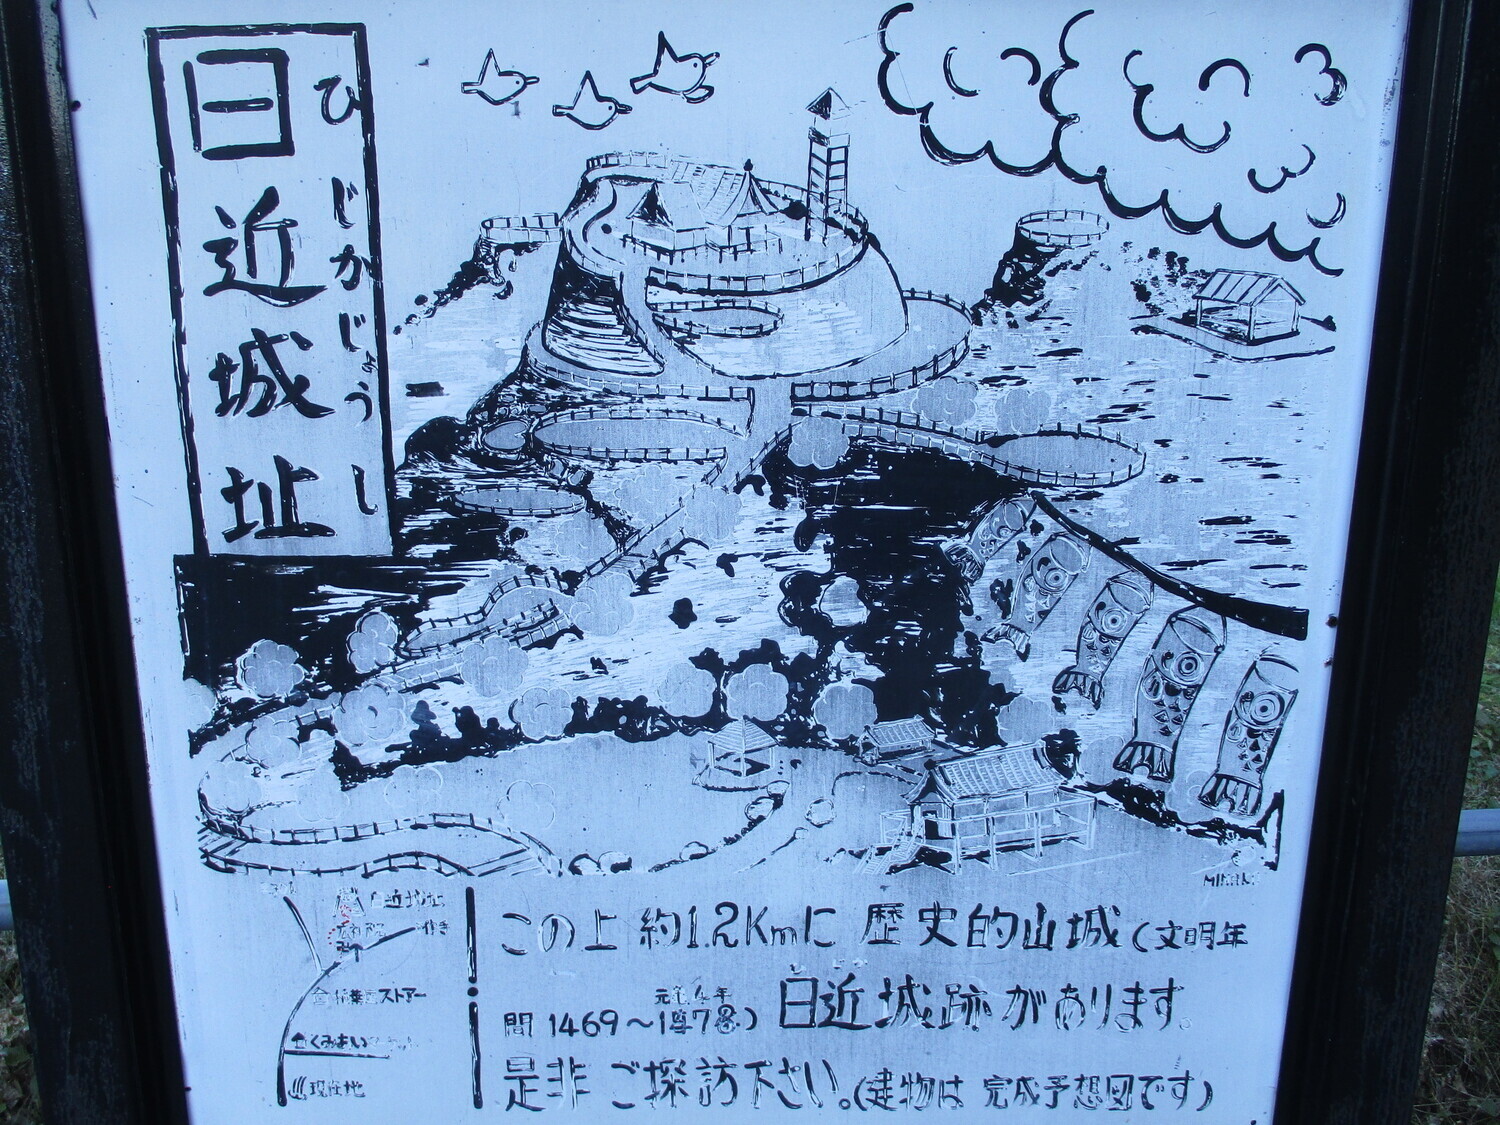 日近城址
ひじかじょうし
MIKIKO
日近城址
ストアー
くみあい
現在地
この上 約1.2Kmに 歴史的山城(文明年
元亀4年
間1469～1573) 日近城跡があります。
是非 ご探訪下さい。(建物は 完成予想図です)